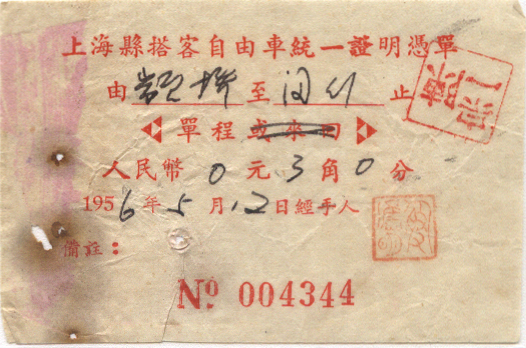 上海縣搭客自由車統一證明憑單
由 至 闵行 止
單程或來回
人民幣 0 元 3 角 0 分
1956年5月12日經手人
備註：
No. 004344